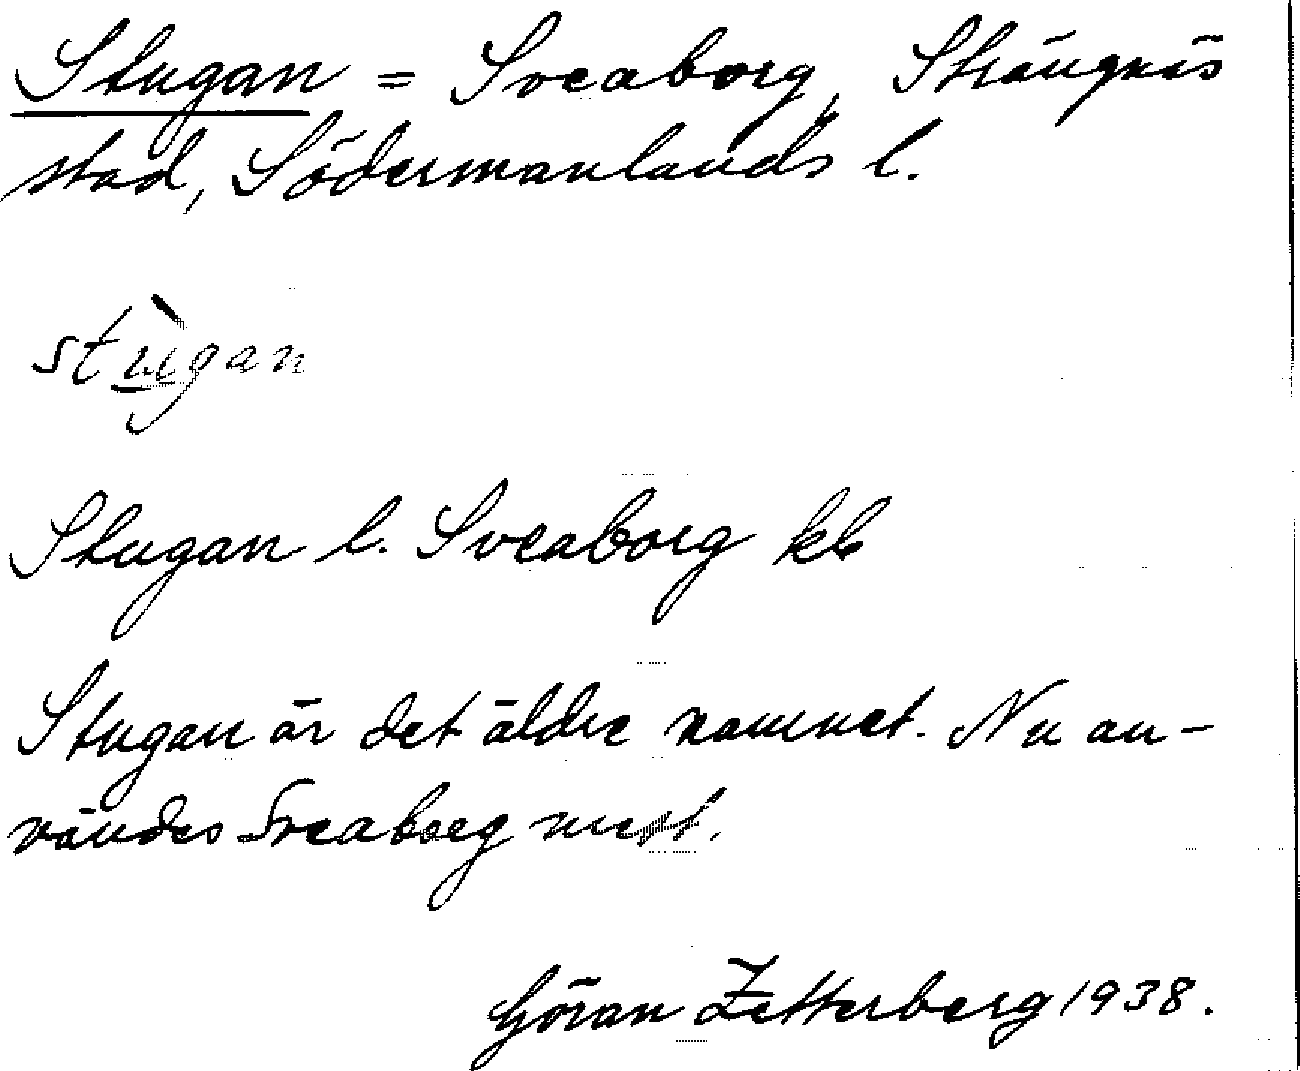 Stugan = Sveaborg, Strängnäs
stad, Södermanlands l.
stùgan
Stugan l. Sveaborg kb
Stugan är det äldre namnet. Nu an-
vändes Sveaborg mest.
Göran Zetterberg 1938.